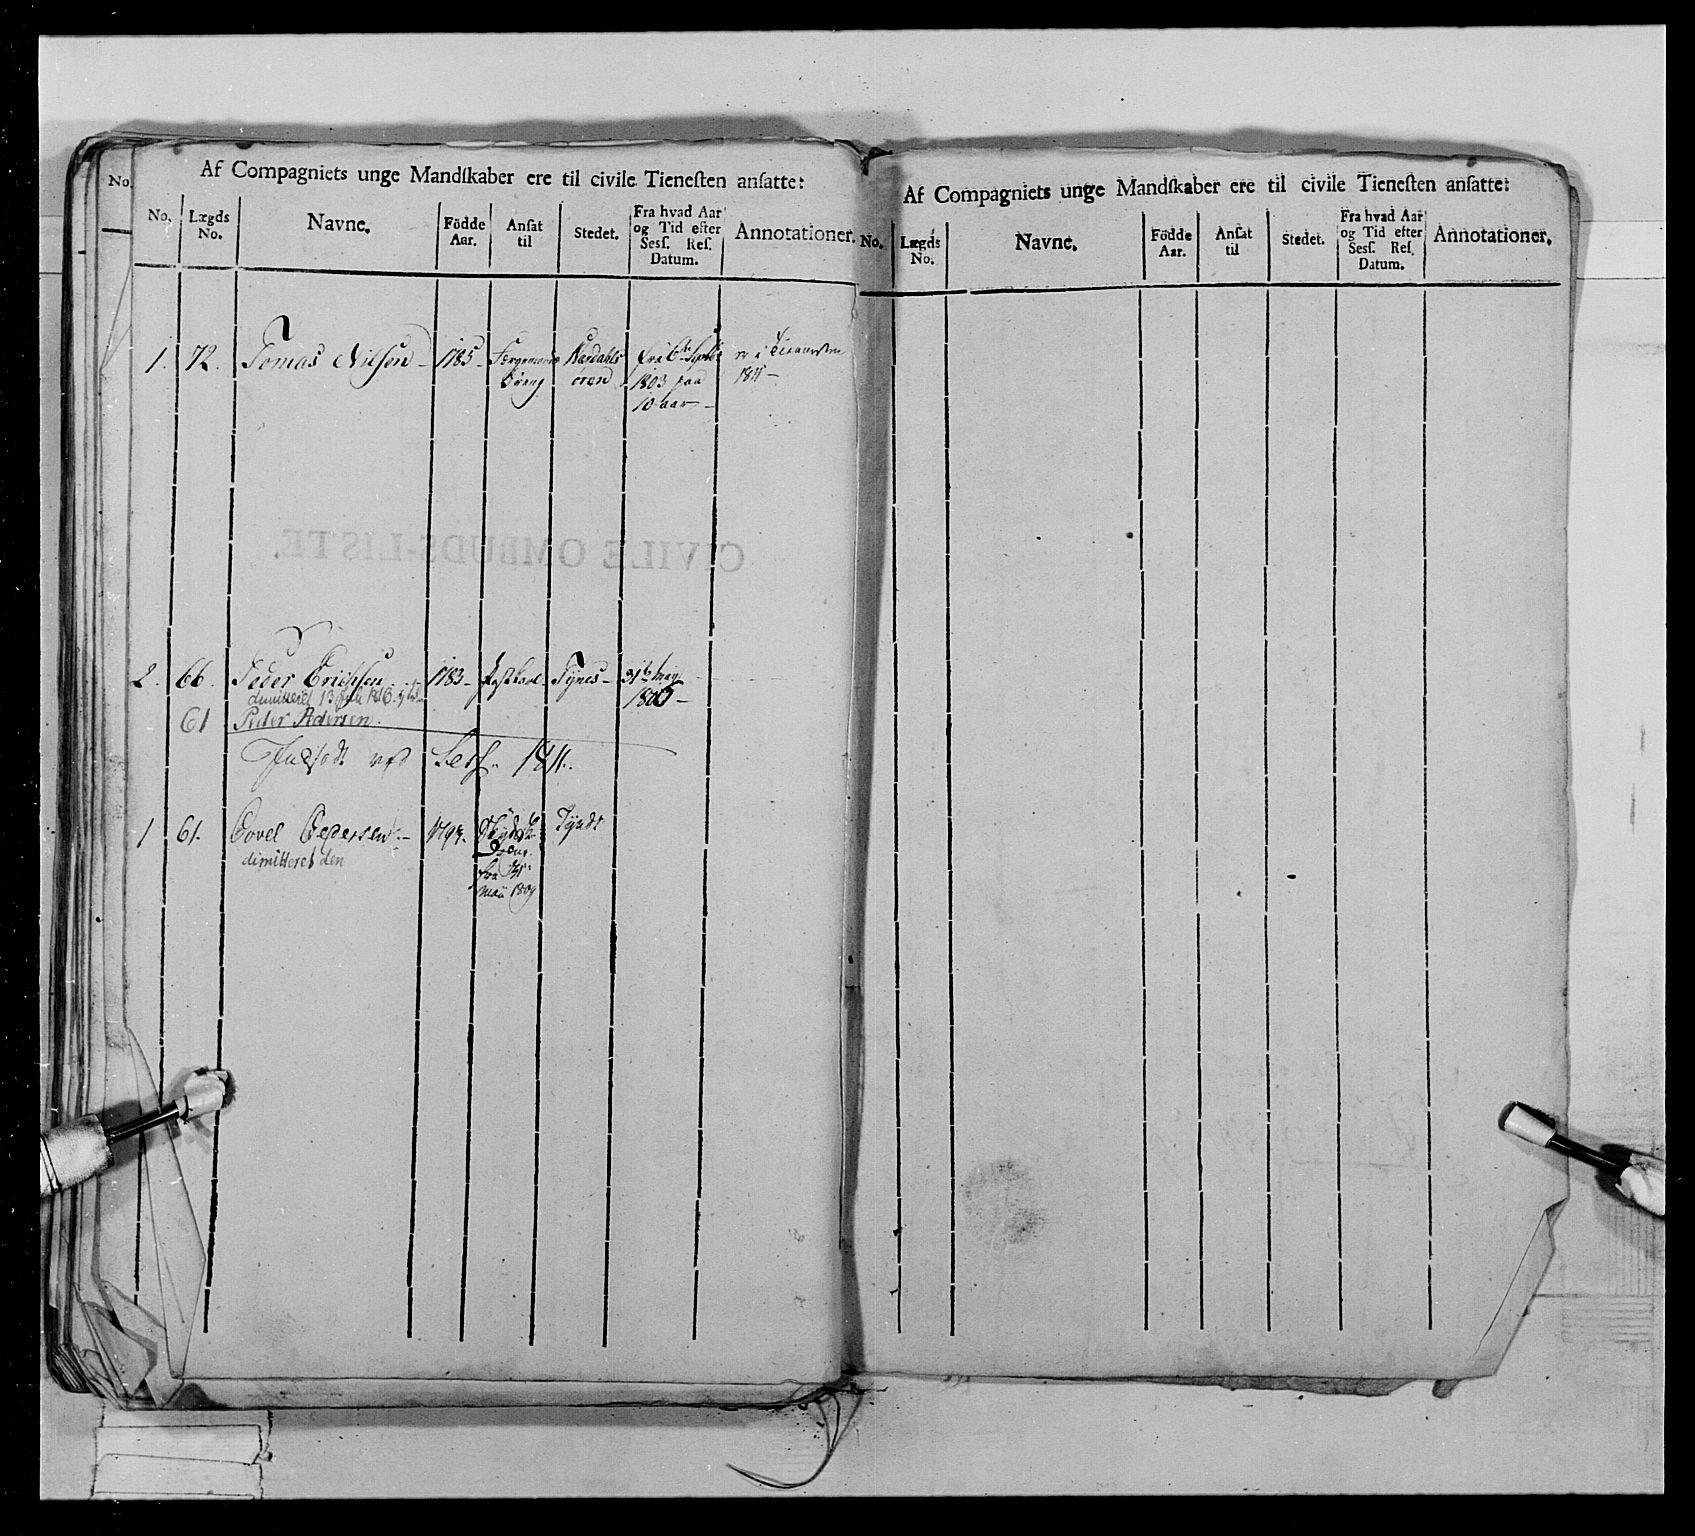 No.
Af Compagniets unge Mandſkaber ere til civile Tieneſten anſatte:
No.
Lægds No.
Navne.
Födde Aar.
Anſat til
Stedet.
Fra hvad Aar og Tid efter Sesſ. Reſ. Datum.
Annotationer.
1. 72. Tomas Nilsen 1785
fra 6te
1803 paa
10 aar
er i Tieneesten
1811
CIVILE OMBUDS-LISTE.
2. 66. Peder Erichsen 1783 Tynes 31te May
1805
dimitteret 13
61 Peder Pedersen
ved Sess. 1811.
1 61. Povel Pedersen
dimitteret den
fra
Maii 1809
Af Compagniets unge Mandſkaber ere til civile Tieneſten anſatte:
No.
Lægds No.
Navne.
Födde Aar.
Anſat til
Stedet.
Fra hvad Aar og Tid efter Sesſ. Reſ. Datum.
Annotationer.